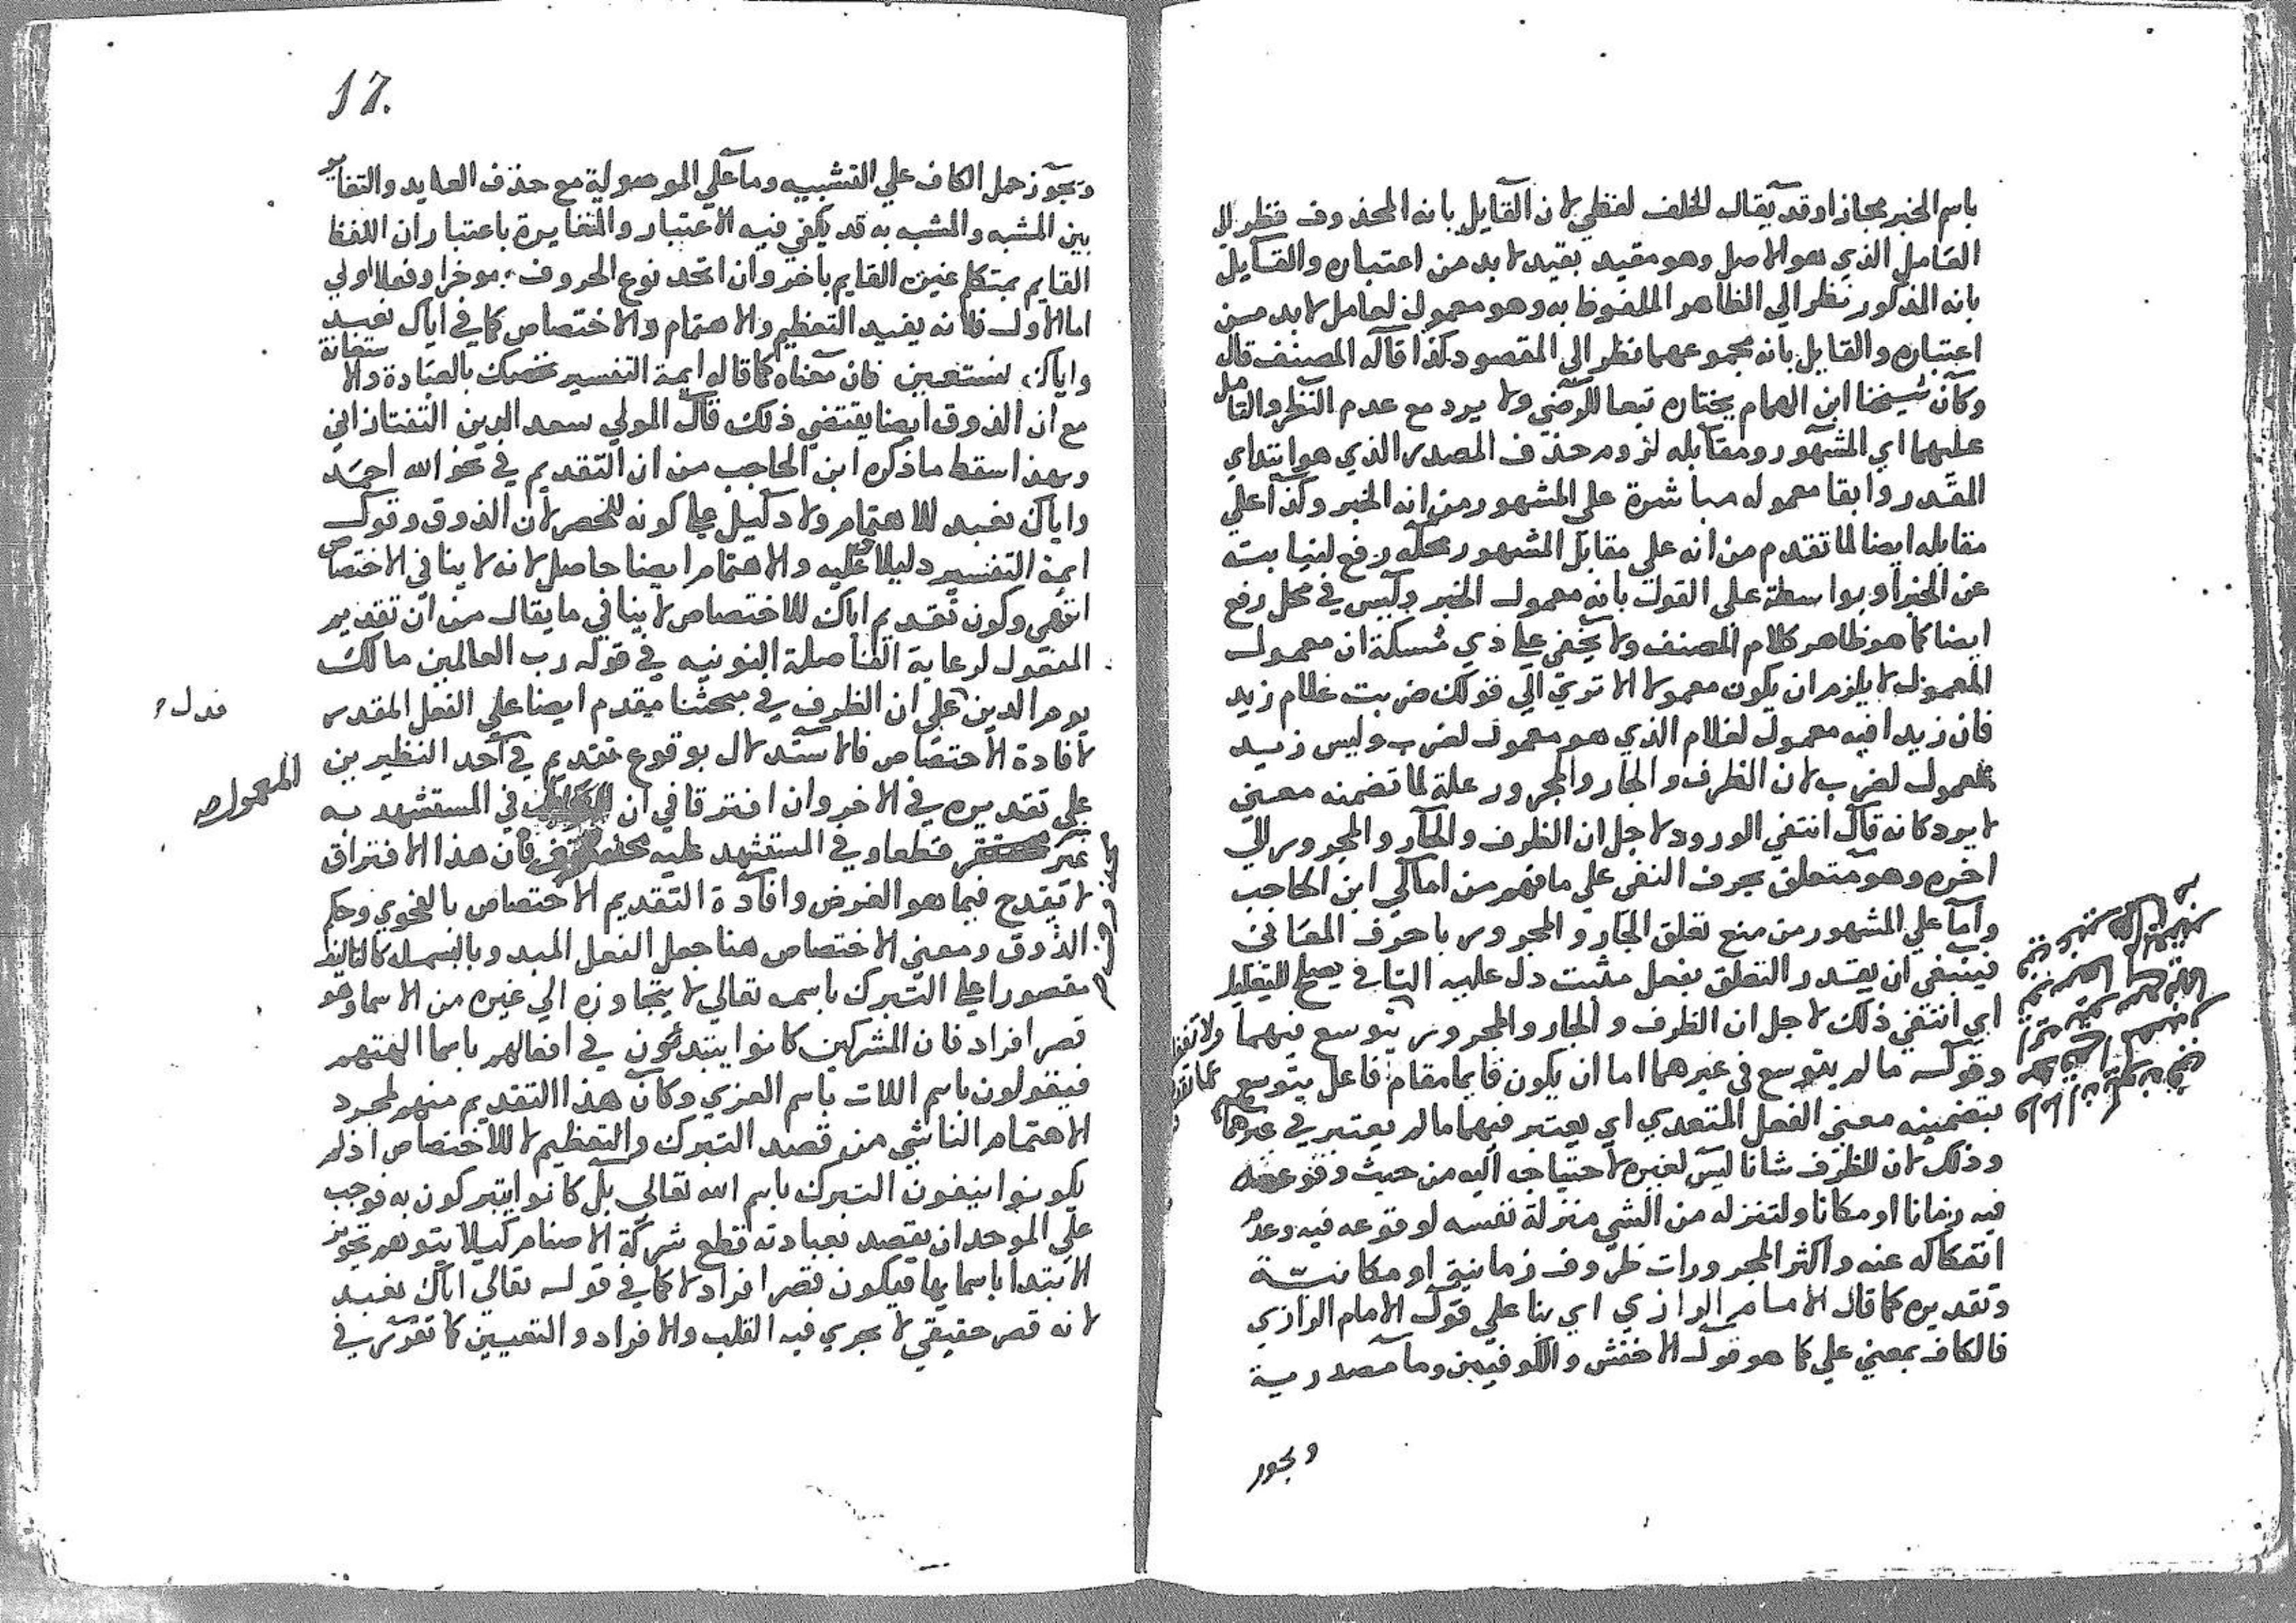 باسم الخبر مجازا وقد يقال الخلف لفظي لان القايل بانه المحذوف نظر لا
العامل الذي هو الاصل وهو مقيد بقيد لا بد من اعتباره والقايل
بانه المذكور نظر الي الظاهر الملفوظ به وهو معمول لعامل لا بد من
اعتباره والقايل بانه مجموعهما نظر الي المقصود كذا قاله المصنف قال
وكان شيخنا ابن الهمام يختاره تبعا للرضي ولا يرد مع عدم النظر والتامل
عليهما اي المشهور ومقابله لزوم حذف المصدر الذي هو ابتداي
المقدر وابقا معموله مباشرة علي المشهور من انه الخبر وكذا علي
مقابله ايضا لما تقدم من انه علي مقابل المشهور محله رفع لنيابته
عن الخبر او بواسطة علي القول بانه معمول الخبر وليس في محل رفع
ايضا كما هو ظاهر كلام المصنف ولا يخفي علي ذي مسكة ان معمول
المعمول لا يلزم ان يكون معمولا الا تري الي قولك ضربت غلام زيد
فان زيدا فيه معمول لغلام الذي هو معمول لضرب وليس زيد
بمعمول لضرب لان الظرف والجار والمجرور علة لما تضمنه معني
لا يرد كانه قال انتفي الورود لاجل ان الظرف والجار والمجرور الي
اخره وهو متعلق بحرف النفي علي ما فهم من امالي ابن الحاجب
واما علي المشهور من منع تعلق الجار والمجرور باحرف المعاني
فينبغي ان يقدر التعلق بفعل مثبت دل عليه النافي يصلح للتعليل
اي انتفي ذلك لاجل ان الظرف والجار والمجرور يتوسع فيهما
وقوله ما لم يتوسع في غيرهما اما ان يكون قايما مقام فاعل يتوسع
بتضمينه معني الفعل المتعدي اي يعتبر فيهما ما لم يعتبر في غيرهما
وذلك لان للظرف شانا ليس لغيره لاحتياجه اليه من حيث وقوعه
فيه زمانا او مكانا ولتنزله من الشي منزلة نفسه لوقوعه فيه وعدم
انفكاكه عنه واكثر المجرورات ظروف زمانية او مكانية
وتقديره كما قال الامام الرازي اي بنا علي قول الامام الرازي
فالكاف بمعني علي كما هو قول الاخفش والكوفيين وما مصدرية
ويجوز
17.
ويجوز حمل الكاف علي التشبيه وما علي الموصولية مع حذف العايد والتغاير
بين المشبه والمشبه به قد يكفي فيه الاعتبار والمغايرة باعتبار ان اللفظ
القايم بمتكلم غيره القايم باخر وان اتحد نوع الحروف موخرا وفعلا اولي
اما الاول فلانه يفيد التعظيم والاهتمام والاختصاص كما في اياك نعبد
واياك نستعين فان معناه كما قاله ايمة التفسير نخصك بالعبادة والاستعانة
مع ان الذوق ايضا يقتضي ذلك قال المولي سعد الدين التفتازاني
وبهذا سقط ما ذكره ابن الحاجب من ان التقديم في نحو الله احمد
واياك نعبد للاهتمام ولا دليل علي كونه للحصر لان الذوق وقول
ايمة التفسير دليلا عليه والاهتمام ايضا حاصل لانه لا ينافي الاختصاص
انتهي وكون تقديم اياك للاختصاص لا ينافي ما يقال من ان تقديم
المفعول لرعاية الفاصلة النونيه في قوله رب العالمين مالك
يوم الدين علي ان الظرف في مبحثنا مقدم ايضا علي الفعل المقدر
لافادة الاختصاص فالاستدلال بوقوع تقديم في احد النظيرين
المعمول
علي تقديره في الاخر وان افترقا في ان في المستشهد به
غير قطعا وفي المستشهد عليه فان هذا الافتراق
لا يقدح فيما هو الغرض وافادة التقديم الاختصاص بالفحوي وحكم
الذوق ومعني الاختصاص هنا جعل الفعل المبدو بالبسملة كالتاليف
مقصورا علي التبرك باسمه تعالي لا يتجاوزه الي غيره من الاسما وهو
قصر افراد فان المشركين كانوا يبتدئون في افعالهم باسما الهتهم
فيقولون باسم اللات باسم العزي وكان هذا التقديم منهم لمجرد
الاهتمام الناشي من قصد التبرك والتعظيم لا للاختصاص اذ لم
يكونوا ينفون التبرك باسم الله تعالي بل كانوا يتبركون به فوجب
علي الموحد ان يقصد بعبادته قطع شركة الاصنام كيلا يتوهم تجويز
الابتدا باسمايها فيكون قصر افراد لا كما في قوله تعالي اياك نعبد
لانه قصر حقيقي لا يجري فيه القلب والافراد والتعيين كما تقرر في